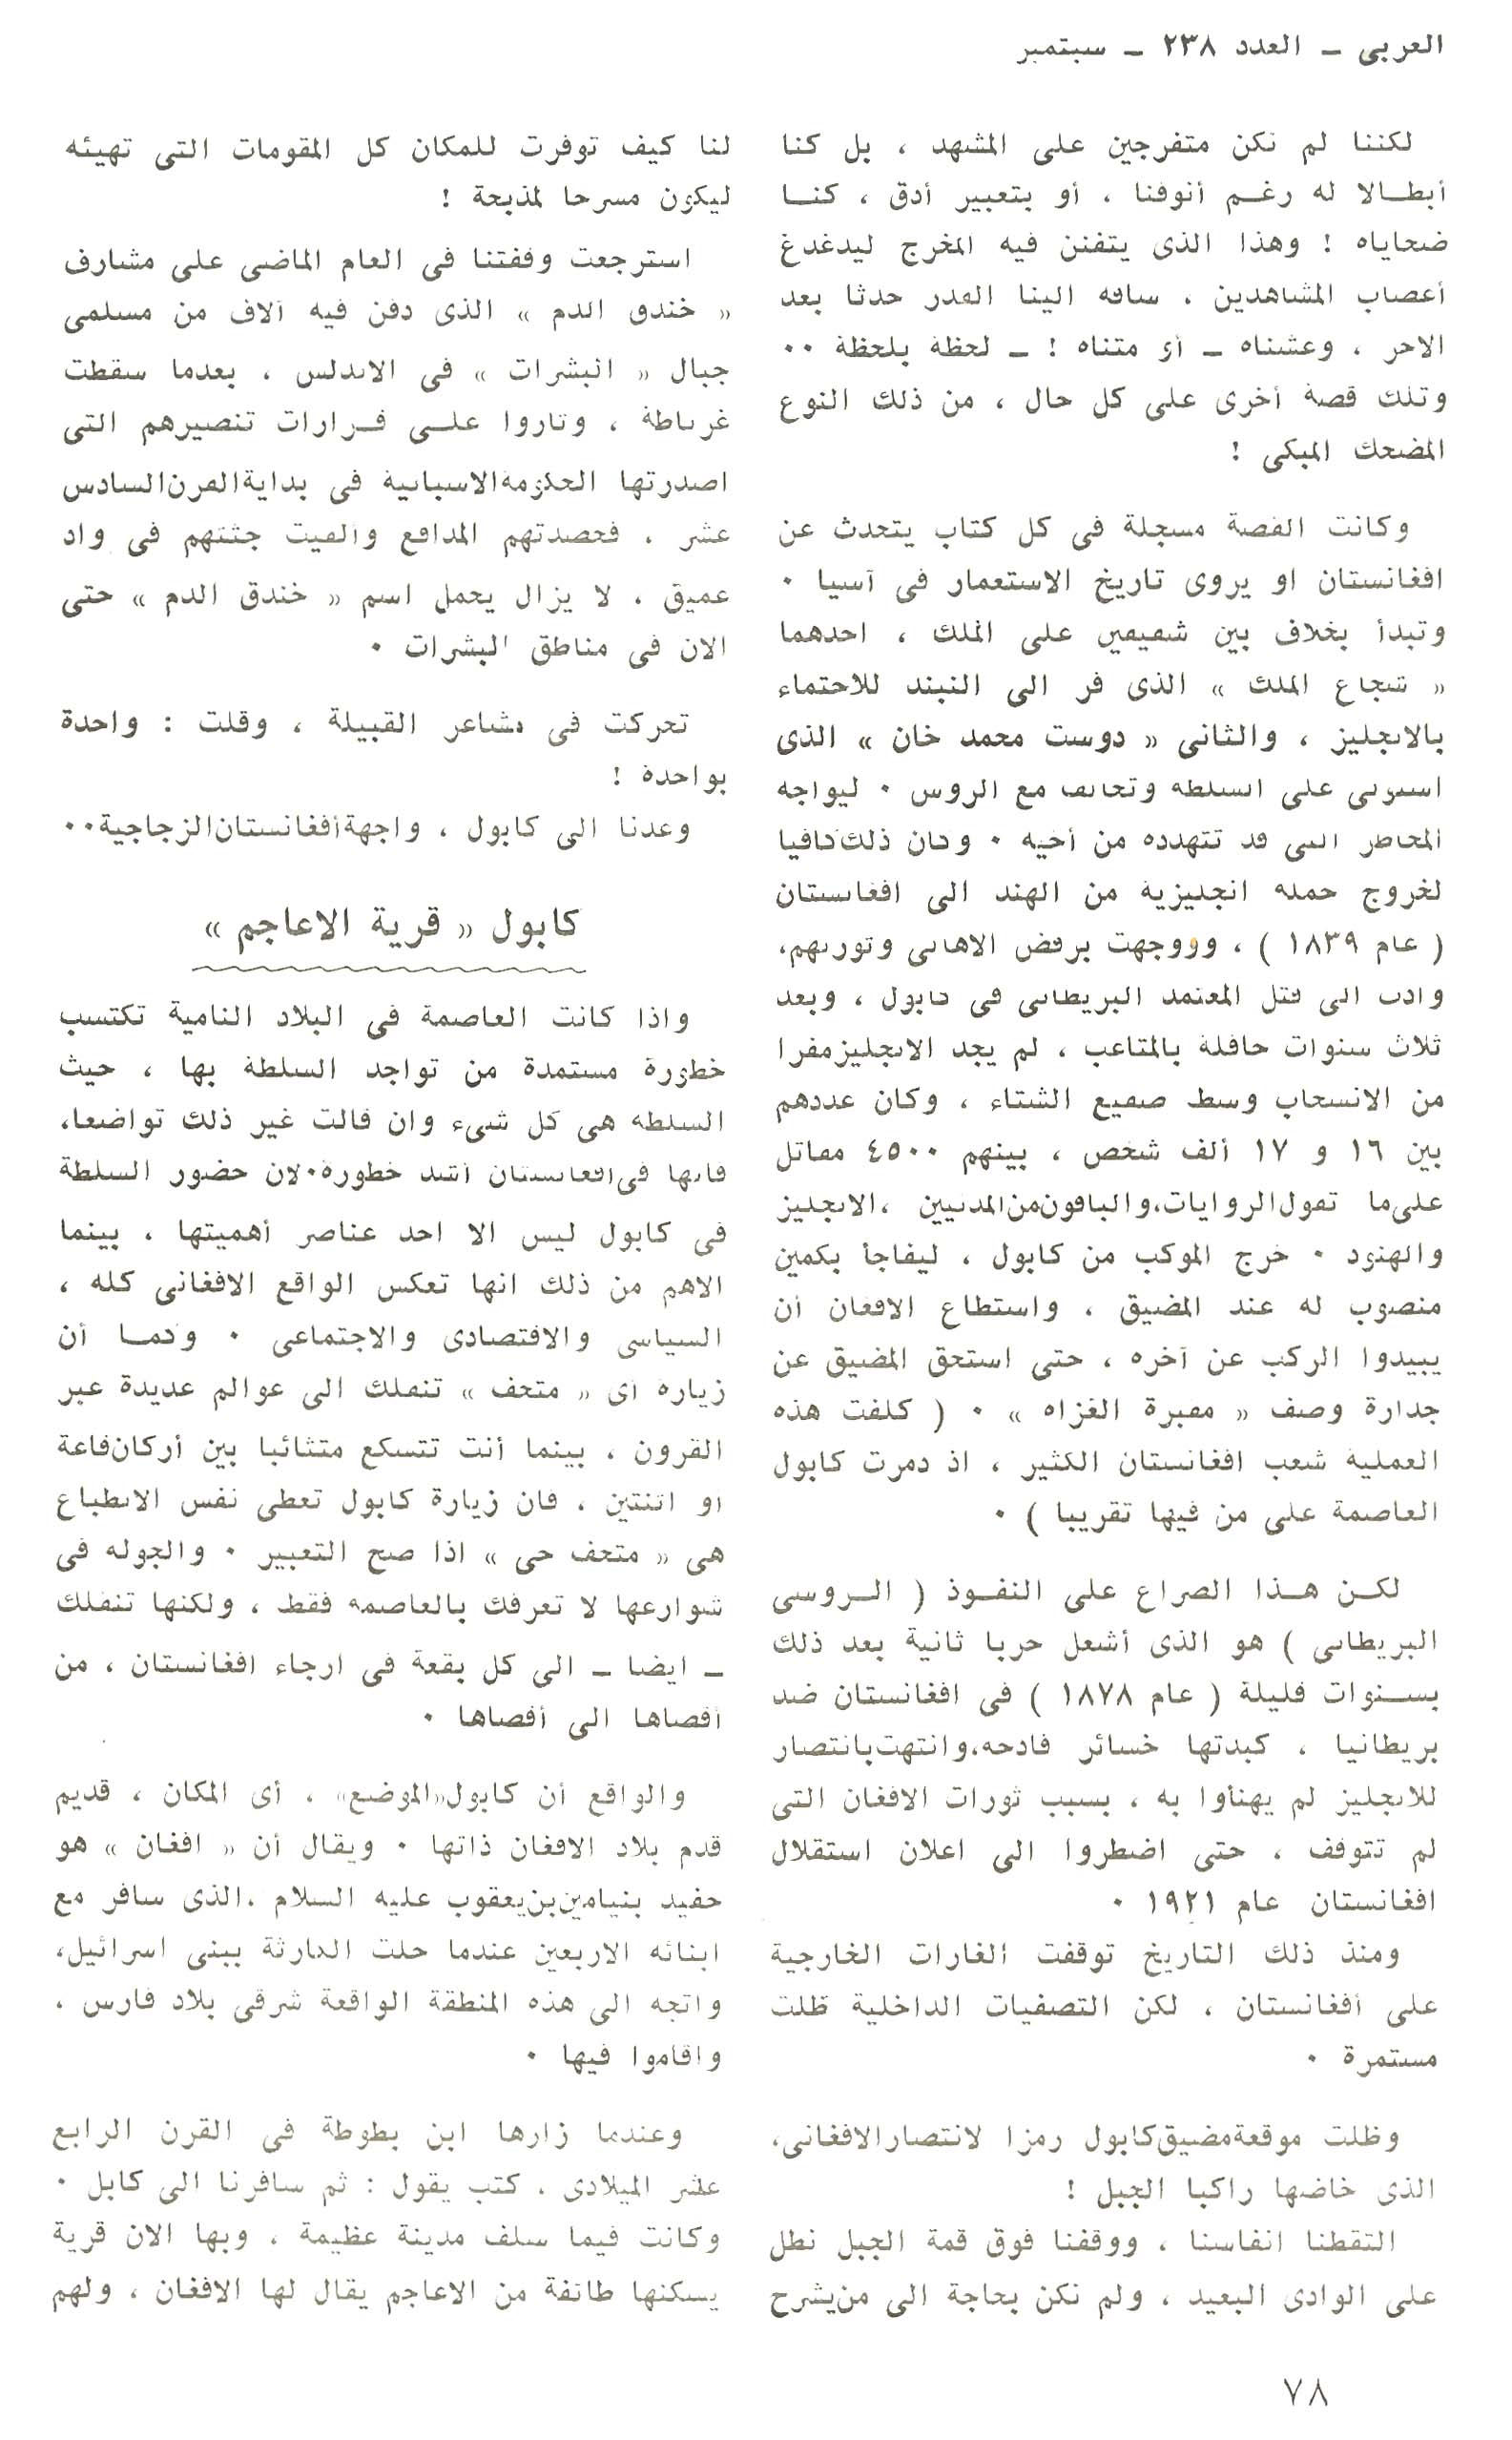 العربى – العدد ٢٣٨ – سبتمبر
لكننا لم نكن متفرجين على المشهد ، بل كنا
أبطالا له رغم أنوفنا ، أو بتعبير أدق ، كنا
ضحاياه ! وهذا الذى يتفنن فيه المخرج ليدغدغ
أعصاب المشاهدين ، ساقه الينا القدر حدثا بعد
الاخر ، وعشناه – أو متناه ! – لحظة بلحظة ٠٠
وتلك قصة أخرى على كل حال ، من ذلك النوع
المضحك المبكى !
وكانت القصة مسجلة فى كل كتاب يتحدث عن
افغانستان او يروى تاريخ الاستعمار فى آسيا ٠
وتبدأ بخلاف بين شقيقين على الملك ، احدهما
« شجاع الملك » الذى فر الى الهند للاحتماء
بالانجليز ، والثانى « دوست محمد خان » الذى
استولى على السلطة وتحالف مع الروس ٠ ليواجه
المخاطر التى قد تتهدده من أخيه ٠ وكان ذلك كافيا
لخروج حملة انجليزية من الهند الى افغانستان
( عام ١٨٣٩ ) ، وووجهت برفض الاهالى وثورتهم،
وادت الى قتل المعتمد البريطانى فى كابول ، وبعد
ثلاث سنوات حافلة بالمتاعب ، لم يجد الانجليز مفرا
من الانسحاب وسط صقيع الشتاء ، وكان عددهم
بين ١٦ و ١٧ ألف شخص ، بينهم ٤٥٠٠ مقاتل
على ما تقول الروايات، والباقون من المدنيين ، الانجليز
والهنود ٠ خرج الموكب من كابول ، ليفاجأ بكمين
منصوب له عند المضيق ، واستطاع الافغان أن
يبيدوا الركب عن آخره ، حتى استحق المضيق عن
جدارة وصف « مقبرة الغزاه » ٠ ( كلفت هذه
العملية شعب افغانستان الكثير ، اذ دمرت كابول
العاصمة على من فيها تقريبا ) ٠
لكن هذا الصراع على النفوذ ( الروسى
البريطانى ) هو الذى أشعل حربا ثانية بعد ذلك
بسنوات قليلة ( عام ١٨٧٨ ) فى افغانستان ضد
بريطانيا ، كبدتها خسائر فادحه، وانتهت بانتصار
للانجليز لم يهنأوا به ، بسبب ثورات الافغان التى
لم تتوقف ، حتى اضطروا الى اعلان استقلال
افغانستان عام ١٩٢١ ٠
ومنذ ذلك التاريخ توقفت الغارات الخارجية
على أفغانستان ، لكن التصفيات الداخلية ظلت
مستمرة ٠
وظلت موقعة مضيق كابول رمزا لانتصار الافغانى،
الذى خاضها راكبا الجبل !
التقطنا انفاسنا ، ووقفنا فوق قمة الجبل نطل
على الوادى البعيد ، ولم نكن بحاجة الى من يشرح
لنا كيف توفرت للمكان كل المقومات التى تهيئه
ليكون مسرحا لمذبحة !
استرجعت وقفتنا فى العام الماضى على مشارف
« خندق الدم » الذى دفن فيه آلاف من مسلمى
جبال « البشرات » فى الاندلس ، بعدما سقطت
غرناطة ، وثاروا على قرارات تنصيرهم التى
اصدرتها الحكومة الاسبانية فى بداية القرن السادس
عشر ، فحصدتهم المدافع والقيت جثثهم فى واد
عميق ، لا يزال يحمل اسم « خندق الدم » حتى
الان فى مناطق البشرات ٠
تحركت فى مشاعر القبيلة ، وقلت : واحدة
بواحدة !
وعدنا الى كابول ، واجهة أفغانستان الزجاجية ٠٠
كابول « قرية الاعاجم »
واذا كانت العاصمة فى البلاد النامية تكتسب
خطورة مستمدة من تواجد السلطة بها ، حيث
السلطه هى كل شىء وان قالت غير ذلك تواضعا،
فانها فى افغانستان أشد خطورة ٠ لان حضور السلطة
فى كابول ليس الا احد عناصر أهميتها ، بينما
الاهم من ذلك انها تعكس الواقع الافغانى كله ،
السياسى والاقتصادى والاجتماعى ٠ وكما أن
زيارة أى « متحف » تنقلك الى عوالم عديدة عبر
القرون ، بينما أنت تتسكع متثائبا بين أركان قاعة
او اثنتين ، فان زيارة كابول تعطى نفس الانطباع
هى « متحف حى » اذا صح التعبير ٠ والجوله فى
شوارعها لا تعرفك بالعاصمه فقط ، ولكنها تنقلك
– ايضا – الى كل بقعة فى ارجاء افغانستان ، من
أقصاها الى أقصاها ٠
والواقع أن كابول «الموضع» ، أى المكان ، قديم
قدم بلاد الافغان ذاتها ٠ ويقال أن « افغان » هو
حفيد بنيامين بن يعقوب عليه السلام ، الذى سافر مع
ابنائه الاربعين عندما حلت الكارثة ببنى اسرائيل،
واتجه الى هذه المنطقة الواقعة شرقى بلاد فارس ،
واقاموا فيها ٠
وعندما زارها ابن بطوطة فى القرن الرابع
عشر الميلادى ، كتب يقول : ثم سافرنا الى كابل ٠
وكانت فيما سلف مدينة عظيمة ، وبها الان قرية
يسكنها طائفة من الاعاجم يقال لها الافغان ، ولهم
٧٨